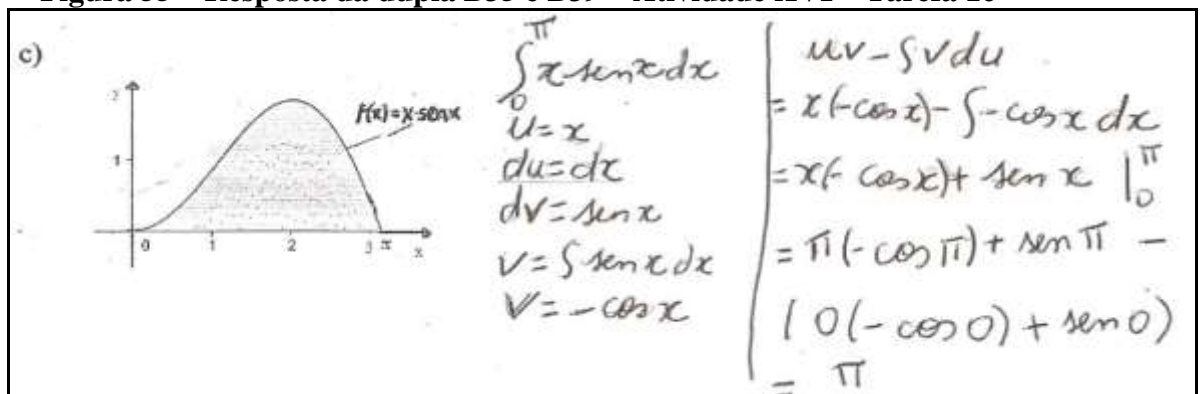 c)
2
1
f(x)=x·senx
0 1 2 3 π x
∫₀^π x senx dx
u=x
du=dx
dv=senx
v=∫senx dx
v=-cosx
uv-∫vdu
=x(-cosx)-∫-cosx dx
=x(-cosx)+sen x |₀^π
=π(-cosπ)+sen π -
(0(-cos0)+sen0)
= π